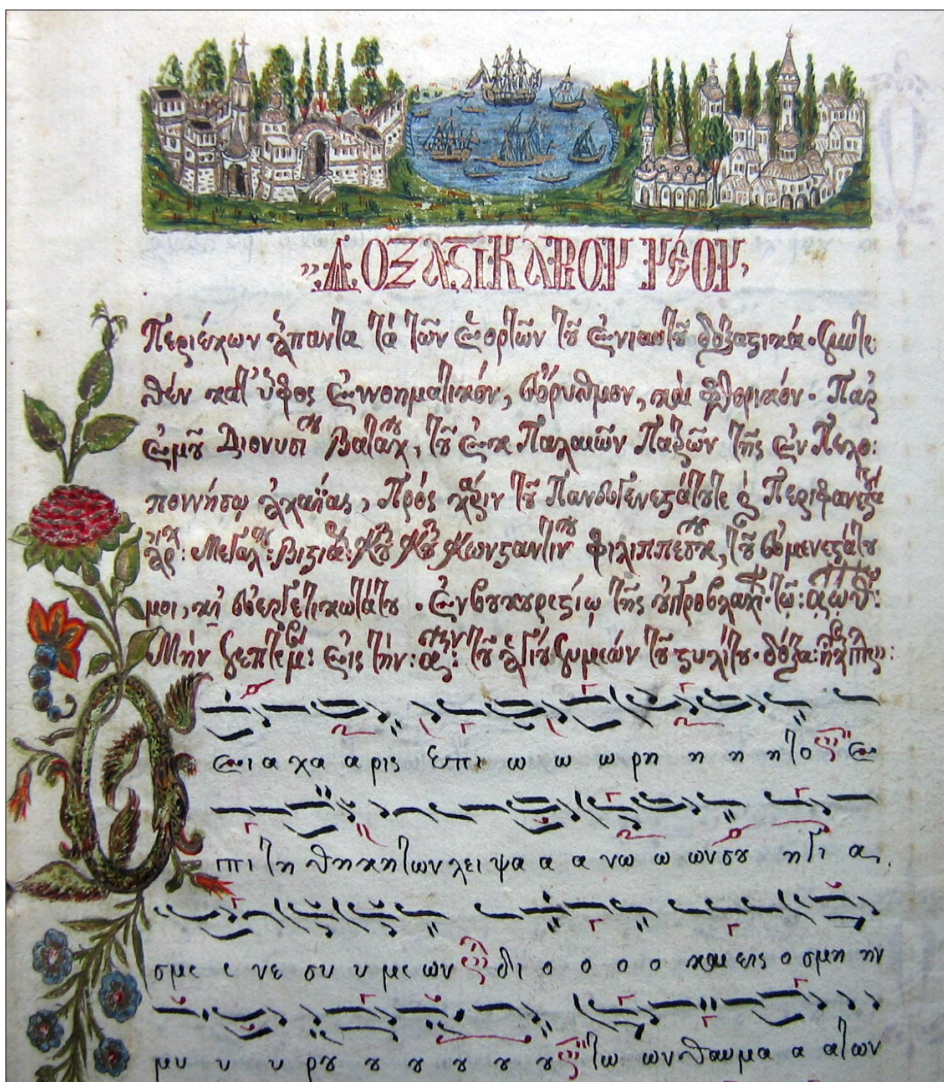 ΔΟΞΑΣΤΙΚΑΡΙΟΝ ΝΕΟΝ
Περιέχων ἅπαντα τὰ τῶν ἑορτῶν τοῦ ἐνιαυτοῦ δοξαστικά· συντε
θὲν κατ' ὕφος ἐννοηματικόν, εὔρυθμον, καὶ φθορικόν· Παρ
ἐμοῦ Διονυσίου τοῦ ἐκ Παλαιῶν Πατρῶν τῆς ἐν Πελο:
ποννήσῳ ἀχαΐας, Πρὸς χάριν τοῦ Πανευγενεστάτου τε Περιφανεστά
ἄρχ: Μεγάλ: Βιστιάρ: Κυ Κυ Κωνσταντίν Φιλιππέσκου, τοῦ εὐμενεστάτου
μοι, κὴ εὐεργετικωτάτου· Ἐν βουκουρεστίῳ τῆς οὑγροβλαχί· τῷ: αωιθ:
Μὴν Σεπτέμ: εἰς τὴν: αην: τοῦ ἁγίου Συμεὼν τοῦ στυλίτου· δόξα: ἦχ πλ:
Θ ει α χα α ρις επι ω ω ω ρη η η η το ε
πι τη θηκη των λειψα α α νω ω ων σου η γι α
σμε ε νε συ υ με ων δι ο ο ο ο και εις ο σμη ην
μυ υ υ ρου ου ου ου ου ου ου τω ων θαυμα α α των